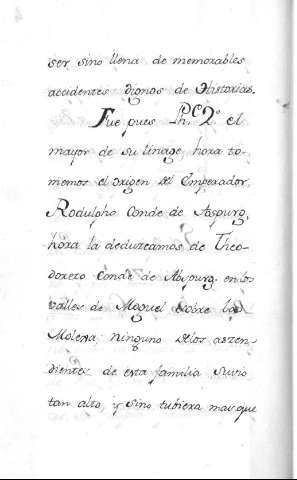 ser sino llena de memorables
accidentes dignos de Historias.
Fue pues Ph.e 2.o el
mayor de su linage, hora to-
memos el origen del Emperador,
Rodulpho Conde de Aspurg,
hora la deduzcamos de Theo-
doreto Conde de Abspurg. en los
valles de Moguel sobre la
Molessa; ninguno de los aszen-
dientes de esta familia suvio
tan alto, y sino tubiera mas que